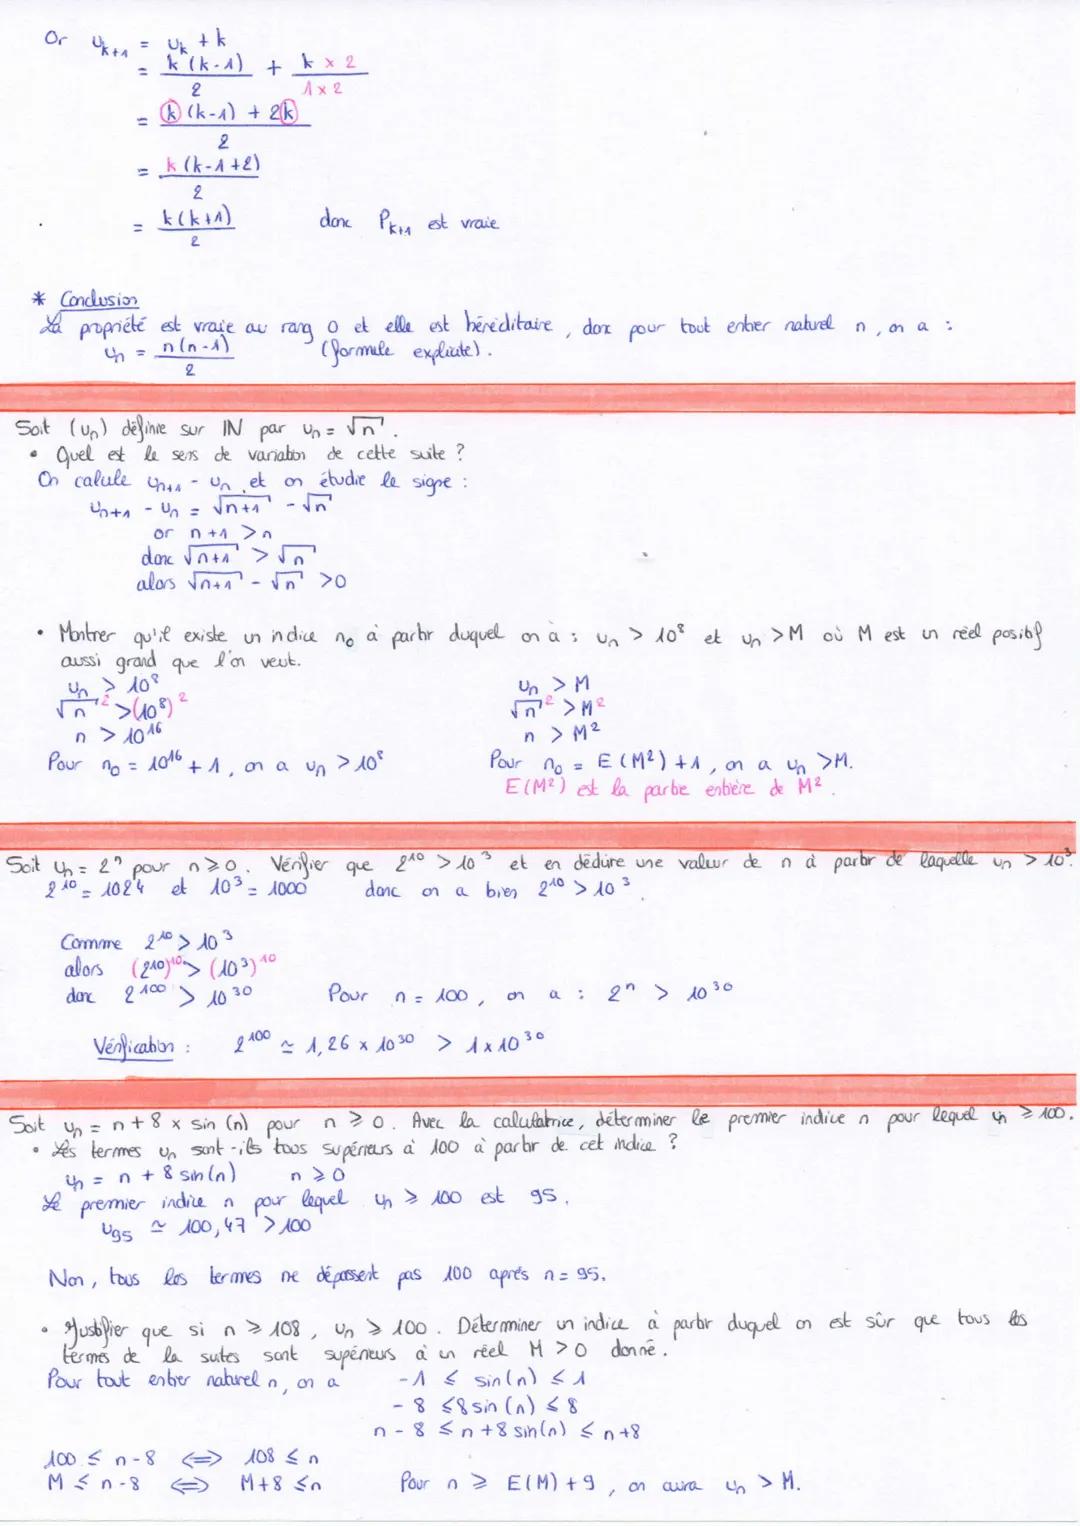 Or u_{k+1} = u_k + k
= k(k-1)/2 + k×2/1×2
= (k(k-1) + 2k)/2
= k(k-1+2)/2
= k(k+1)/2 donc P_{k+1} est vraie
* Conclusion
La propriété est vraie au rang 0 et elle est héréditaire, donc pour tout entier naturel n, on a :
u_n = n(n-1)/2 (formule explicite).
Soit (u_n) définie sur IN par u_n = √n.
• Quel est le sens de variation de cette suite ?
On calcule u_{n+1} - u_n et on étudie le signe :
u_{n+1} - u_n = √(n+1) - √n
or n+1 > n
donc √(n+1) > √n
alors √(n+1) - √n > 0
• Montrer qu'il existe un indice n_0 à partir duquel on a : u_n > 10^8 et u_n > M où M est un réel positif
aussi grand que l'on veut.
u_n > 10^8
√n^2 > (10^8)^2
n > 10^16
Pour n_0 = 10^16 + 1, on a u_n > 10^8
u_n > M
√n^2 > M^2
n > M^2
Pour n_0 = E(M^2) + 1, on a u_n > M.
E(M^2) est la partie entière de M^2.
Soit u_n = 2^n pour n ≥ 0. Vérifier que 2^10 > 10^3 et en déduire une valeur de n à partir de laquelle u_n > 10^3.
2^10 = 1024 et 10^3 = 1000 donc on a bien 2^10 > 10^3.
Comme 2^10 > 10^3
alors (2^10)^10 > (10^3)^10
donc 2^100 > 10^30 Pour n = 100, on a : 2^n > 10^30
Vérification : 2^100 ≃ 1,26 × 10^30 > 1×10^30
Soit u_n = n + 8 × sin(n) pour n ≥ 0. Avec la calculatrice, déterminer le premier indice n pour lequel u_n ≥ 100.
• Les termes u_n sont-ils tous supérieurs à 100 à partir de cet indice ?
u_n = n + 8 sin(n) n ≥ 0
Le premier indice n pour lequel u_n ≥ 100 est 95.
u_95 ≃ 100,47 > 100
Non, tous les termes ne dépassent pas 100 après n = 95.
• Justifier que si n ≥ 108, u_n ≥ 100. Déterminer un indice à partir duquel on est sûr que tous les
termes de la suites sont supérieurs à un réel M > 0 donné.
Pour tout entier naturel n, on a -1 ≤ sin(n) ≤ 1
-8 ≤ 8 sin(n) ≤ 8
n - 8 ≤ n + 8 sin(n) ≤ n+8
100 ≤ n-8 ⟺ 108 ≤ n
M ≤ n-8 ⟺ M+8 ≤ n Pour n ≥ E(M) + 9, on aura u_n > M.